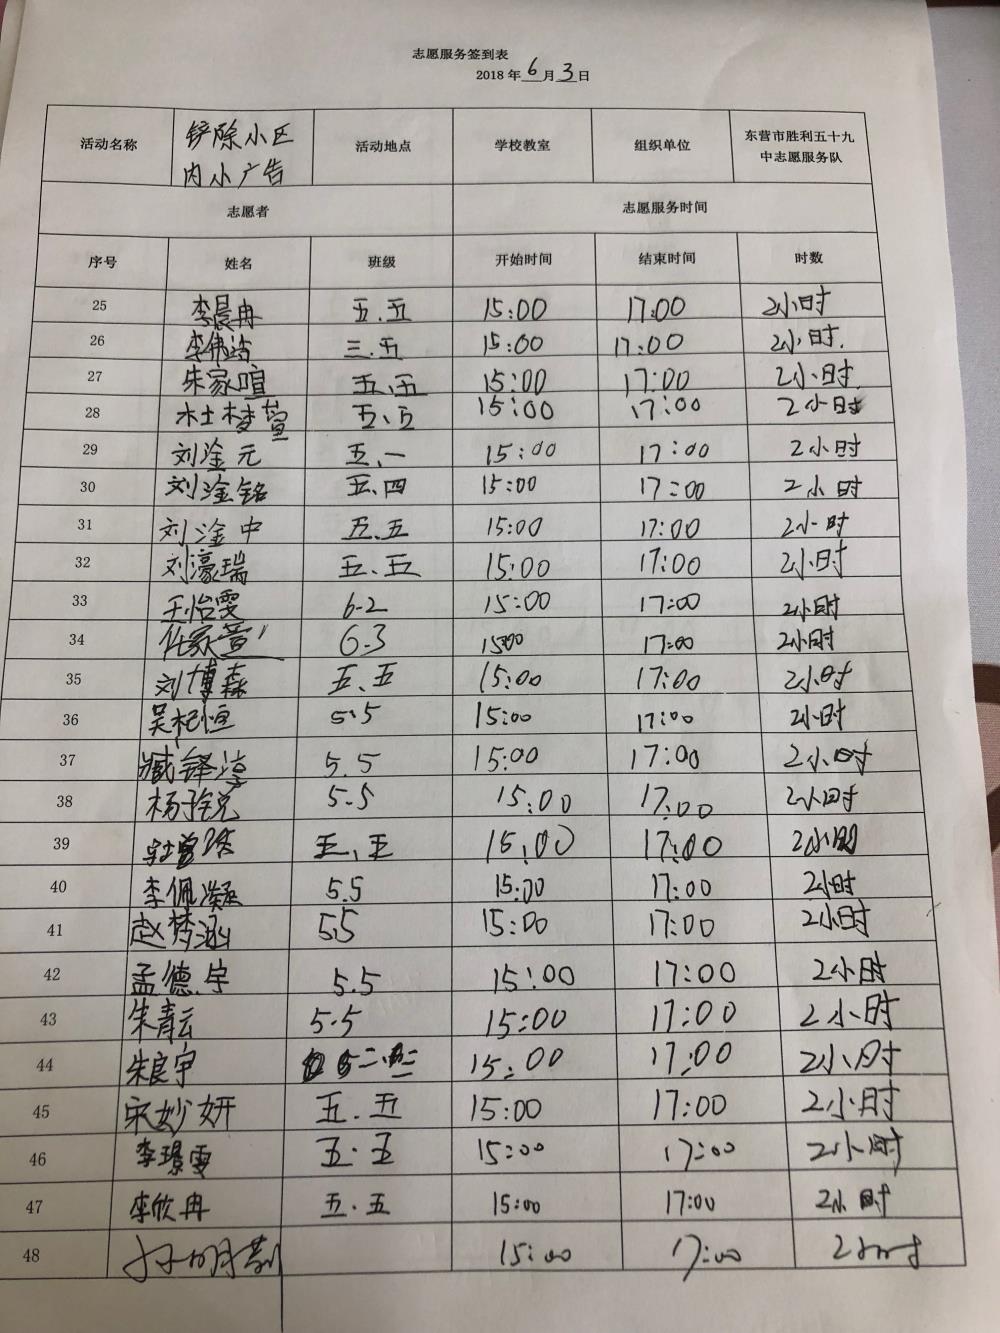 志愿服务签到表
2018年6月3日
活动名称 铲除小区内小广告 活动地点 学校教室 组织单位 东营市胜利五十九中志愿服务队
志愿者 志愿服务时间
序号 姓名 班级 开始时间 结束时间 时数
25 李晨冉 五.五 15:00 17:00 2小时
26 李伟 三.五 15:00 17:00 2小时.
27 朱家喧 五、五 15:00 17:00 2小时
28 杜梦萱 五、五 15:00 17:00 2小时
29 刘淦元 五、一 15:00 17:00 2小时
30 刘淦铭 五、四 15:00 17:00 2小时
31 刘淦中 五、五 15:00 17:00 2小时
32 刘濠瑞 五、五 15:00 17:00 2小时
33 王怡雯 6-2 15:00 17:00 2小时
34 任家萱 6.3 15:00 17:00 2小时
35 刘博森 五、五 15:00 17:00 2小时
36 吴杞恒 5.5 15:00 17:00 2小时
37 臧铎淳 5.5 15:00 17:00 2小时
38 杨子锐 5.5 15:00 17:00 2小时
39 五、五 15:00 17:00 2小时
40 李佩凝 5.5 15:00 17:00 2小时
41 赵梦涵 5.5 15:00 17:00 2小时
42 孟德宇 5.5 15:00 17:00 2小时
43 朱青云 5.5 15:00 17:00 2小时
44 朱良宇 15:00 17:00 2小时
45 宋妙妍 五.五 15:00 17:00 2小时
46 李璟雯 五.五 15:00 17:00 2小时
47 李欣冉 五.五 15:00 17:00 2小时
48 15:00 17:00 2小时